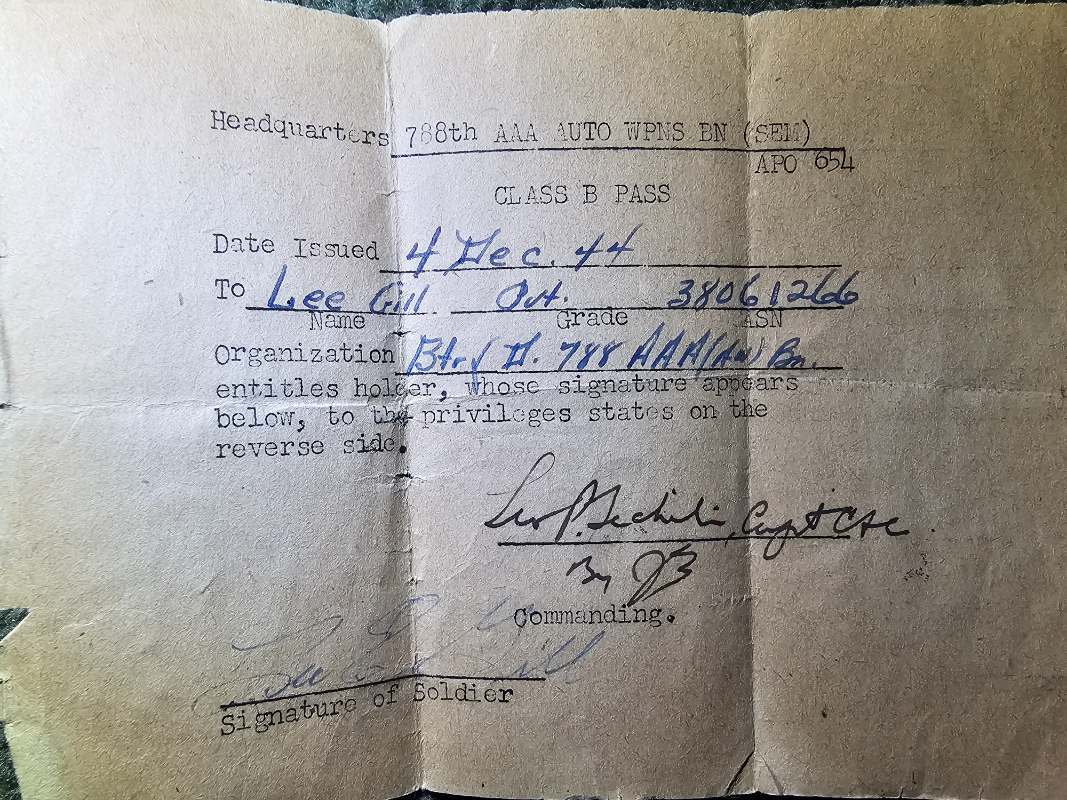 Headquarters 788th AAA AUTO WPNS BN (SEM)
APO 654
CLASS B PASS
Date Issued 4 Dec. 44
To Lee Gill Pvt. 38061266
Name Grade ASN
Organization Btry D. 788 AAA (AW) Bn.
entitles holder, whose signature appears
below, to the privileges states on the
reverse side.
Capt CAC
By JB
Commanding.
Gill
Signature of Soldier